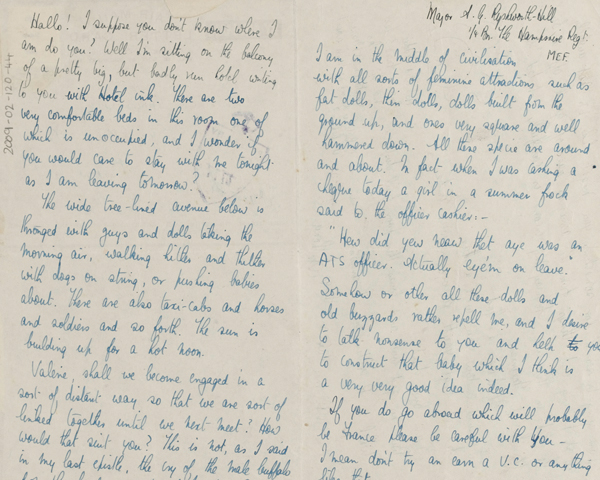 Hallo! I suppose you don't know where I
am do you? Well I'm sitting on the balcony
of a pretty big, but badly run hotel writing
to you with Hotel ink. There are two
very comfortable beds in this room one of
which is unoccupied, and I wonder if
you would care to stay with me tonight
as I am leaving tomorrow?
The wide tree-lined avenue below is
thronged with guys and dolls taking the
morning air, walking hither and thither
with dogs on string, or pushing babies
about. There are also taxi-cabs and horses
and soldiers and so forth. The sun is
building up for a hot noon.
Valerie, shall we become engaged in a
sort of distant way so that we are sort of
linked together until we next meet? How
would that suit you? This is not, as I said
in my last epistle, the cry of the male buffalo
2009-02-120-44
Major A. G.
1/ Bn. The Hampshire Regt.
MEF.
I am in the middle of civilisation
with all sorts of feminine attractions such as
fat dolls, thin dolls, dolls built from the
ground up, and ones very square and well
hammered down. All these specie are around
and about. In fact when I was cashing a
cheque today a girl in a summer frock
said to the officer cashier:-
"How did yew neaw that aye was an
ATS officer. Actually eye'm on leave."
Somehow or other all these dolls and
old buzzards rather repell me, and I desire
to talk nonsense to you and help to you
to construct that baby which I think is
a very very good idea indeed.
If you do go abroad which will probably
be France please be careful with you -
I mean don't try an earn a V.C. or anything
like that